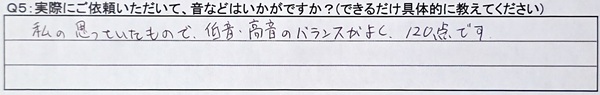 Q5：実際にご依頼いただいて、音などはいかがですか？(できるだけ具体的に教えてください)
私の思っていたもので、伯音・高音のバランスがよく、120点です